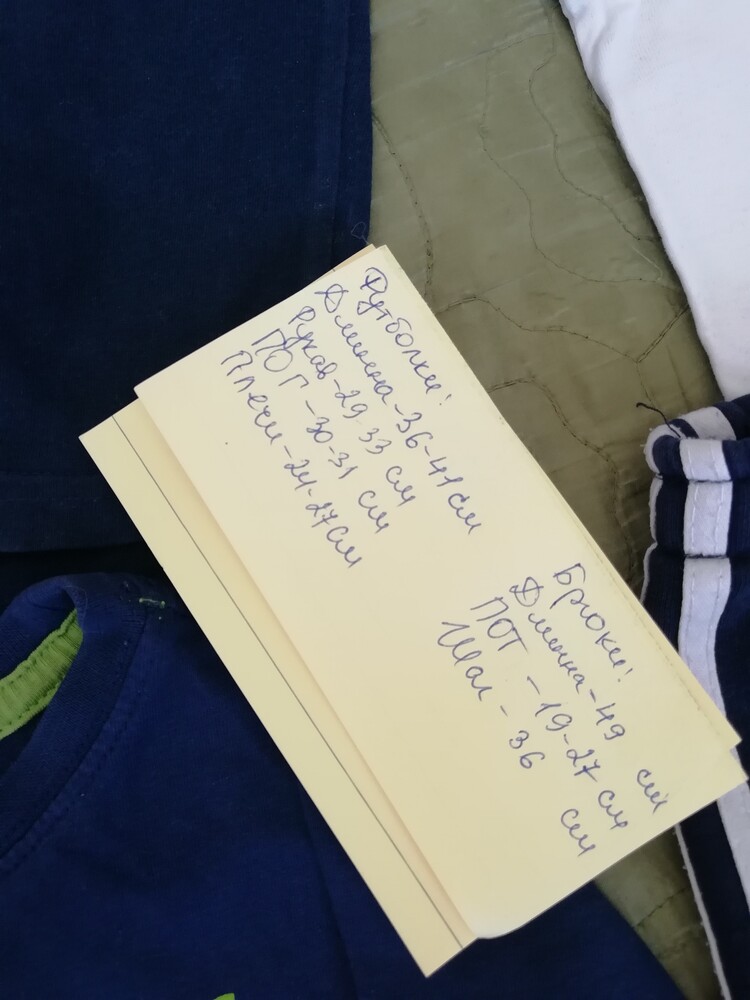 Футболки!
Длинна-36-41см
Рукав-29-33 см
ПОГ-30-31 см
Плечи-24-27см
Брюки!
Длинна-49 см
ПОТ-19-27 см
Шаг-36 см